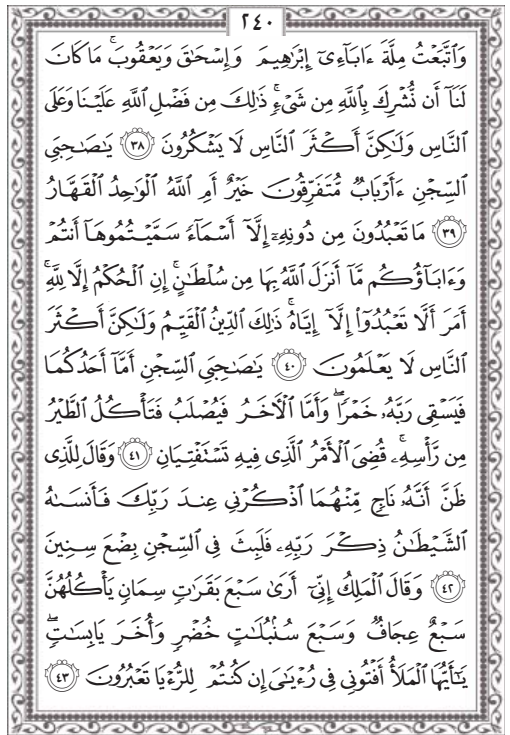 ٢٤٠
وَٱتَّبَعْتُ مِلَّةَ ءَابَآءِىٓ إِبْرَٰهِيمَ وَإِسْحَٰقَ وَيَعْقُوبَ ۚ مَا كَانَ
لَنَآ أَن نُّشْرِكَ بِٱللَّهِ مِن شَىْءٍ ۚ ذَٰلِكَ مِن فَضْلِ ٱللَّهِ عَلَيْنَا وَعَلَى
ٱلنَّاسِ وَلَٰكِنَّ أَكْثَرَ ٱلنَّاسِ لَا يَشْكُرُونَ ٣٨ يَٰصَىٰحِبَىِ
ٱلسِّجْنِ ءَأَرْبَابٌ مُّتَفَرِّقُونَ خَيْرٌ أَمِ ٱللَّهُ ٱلْوَٰحِدُ ٱلْقَهَّارُ
٣٩ مَا تَعْبُدُونَ مِن دُونِهِۦٓ إِلَّآ أَسْمَآءً سَمَّيْتُمُوهَآ أَنتُمْ
وَءَابَآؤُكُم مَّآ أَنزَلَ ٱللَّهُ بِهَا مِن سُلْطَٰنٍ ۚ إِنِ ٱلْحُكْمُ إِلَّا لِلَّهِ ۚ
أَمَرَ أَلَّا تَعْبُدُوٓا۟ إِلَّآ إِيَّاهُ ۚ ذَٰلِكَ ٱلدِّينُ ٱلْقَيِّمُ وَلَٰكِنَّ أَكْثَرَ
ٱلنَّاسِ لَا يَعْلَمُونَ ٤٠ يَٰصَٰحِبَىِ ٱلسِّجْنِ أَمَّآ أَحَدُكُمَا
فَيَسْقِى رَبَّهُۥ خَمْرًا ۖ وَأَمَّا ٱلْءَاخَرُ فَيُصْلَبُ فَتَأْكُلُ ٱلطَّيْرُ
مِن رَّأْسِهِۦ ۚ قُضِىَ ٱلْأَمْرُ ٱلَّذِى فِيهِ تَسْتَفْتِيَانِ ٤١ وَقَالَ لِلَّذِى
ظَنَّ أَنَّهُۥ نَاجٍ مِّنْهُمَا ٱذْكُرْنِى عِندَ رَبِّكَ فَأَنسَىٰهُ
ٱلشَّيْطَٰنُ ذِكْرَ رَبِّهِۦ فَلَبِثَ فِى ٱلسِّجْنِ بِضْعَ سِنِينَ
٤٢ وَقَالَ ٱلْمَلِكُ إِنِّىٓ أَرَىٰ سَبْعَ بَقَرَٰتٍ سِمَانٍ يَأْكُلُهُنَّ
سَبْعٌ عِجَافٌ وَسَبْعَ سُنۢبُلَٰتٍ خُضْرٍ وَأُخَرَ يَابِسَٰتٍ ۖ
يَٰٓأَيُّهَا ٱلْمَلَأُ أَفْتُونِى فِى رُءْيَٰىَ إِن كُنتُمْ لِلرُّءْيَا تَعْبُرُونَ ٤٣